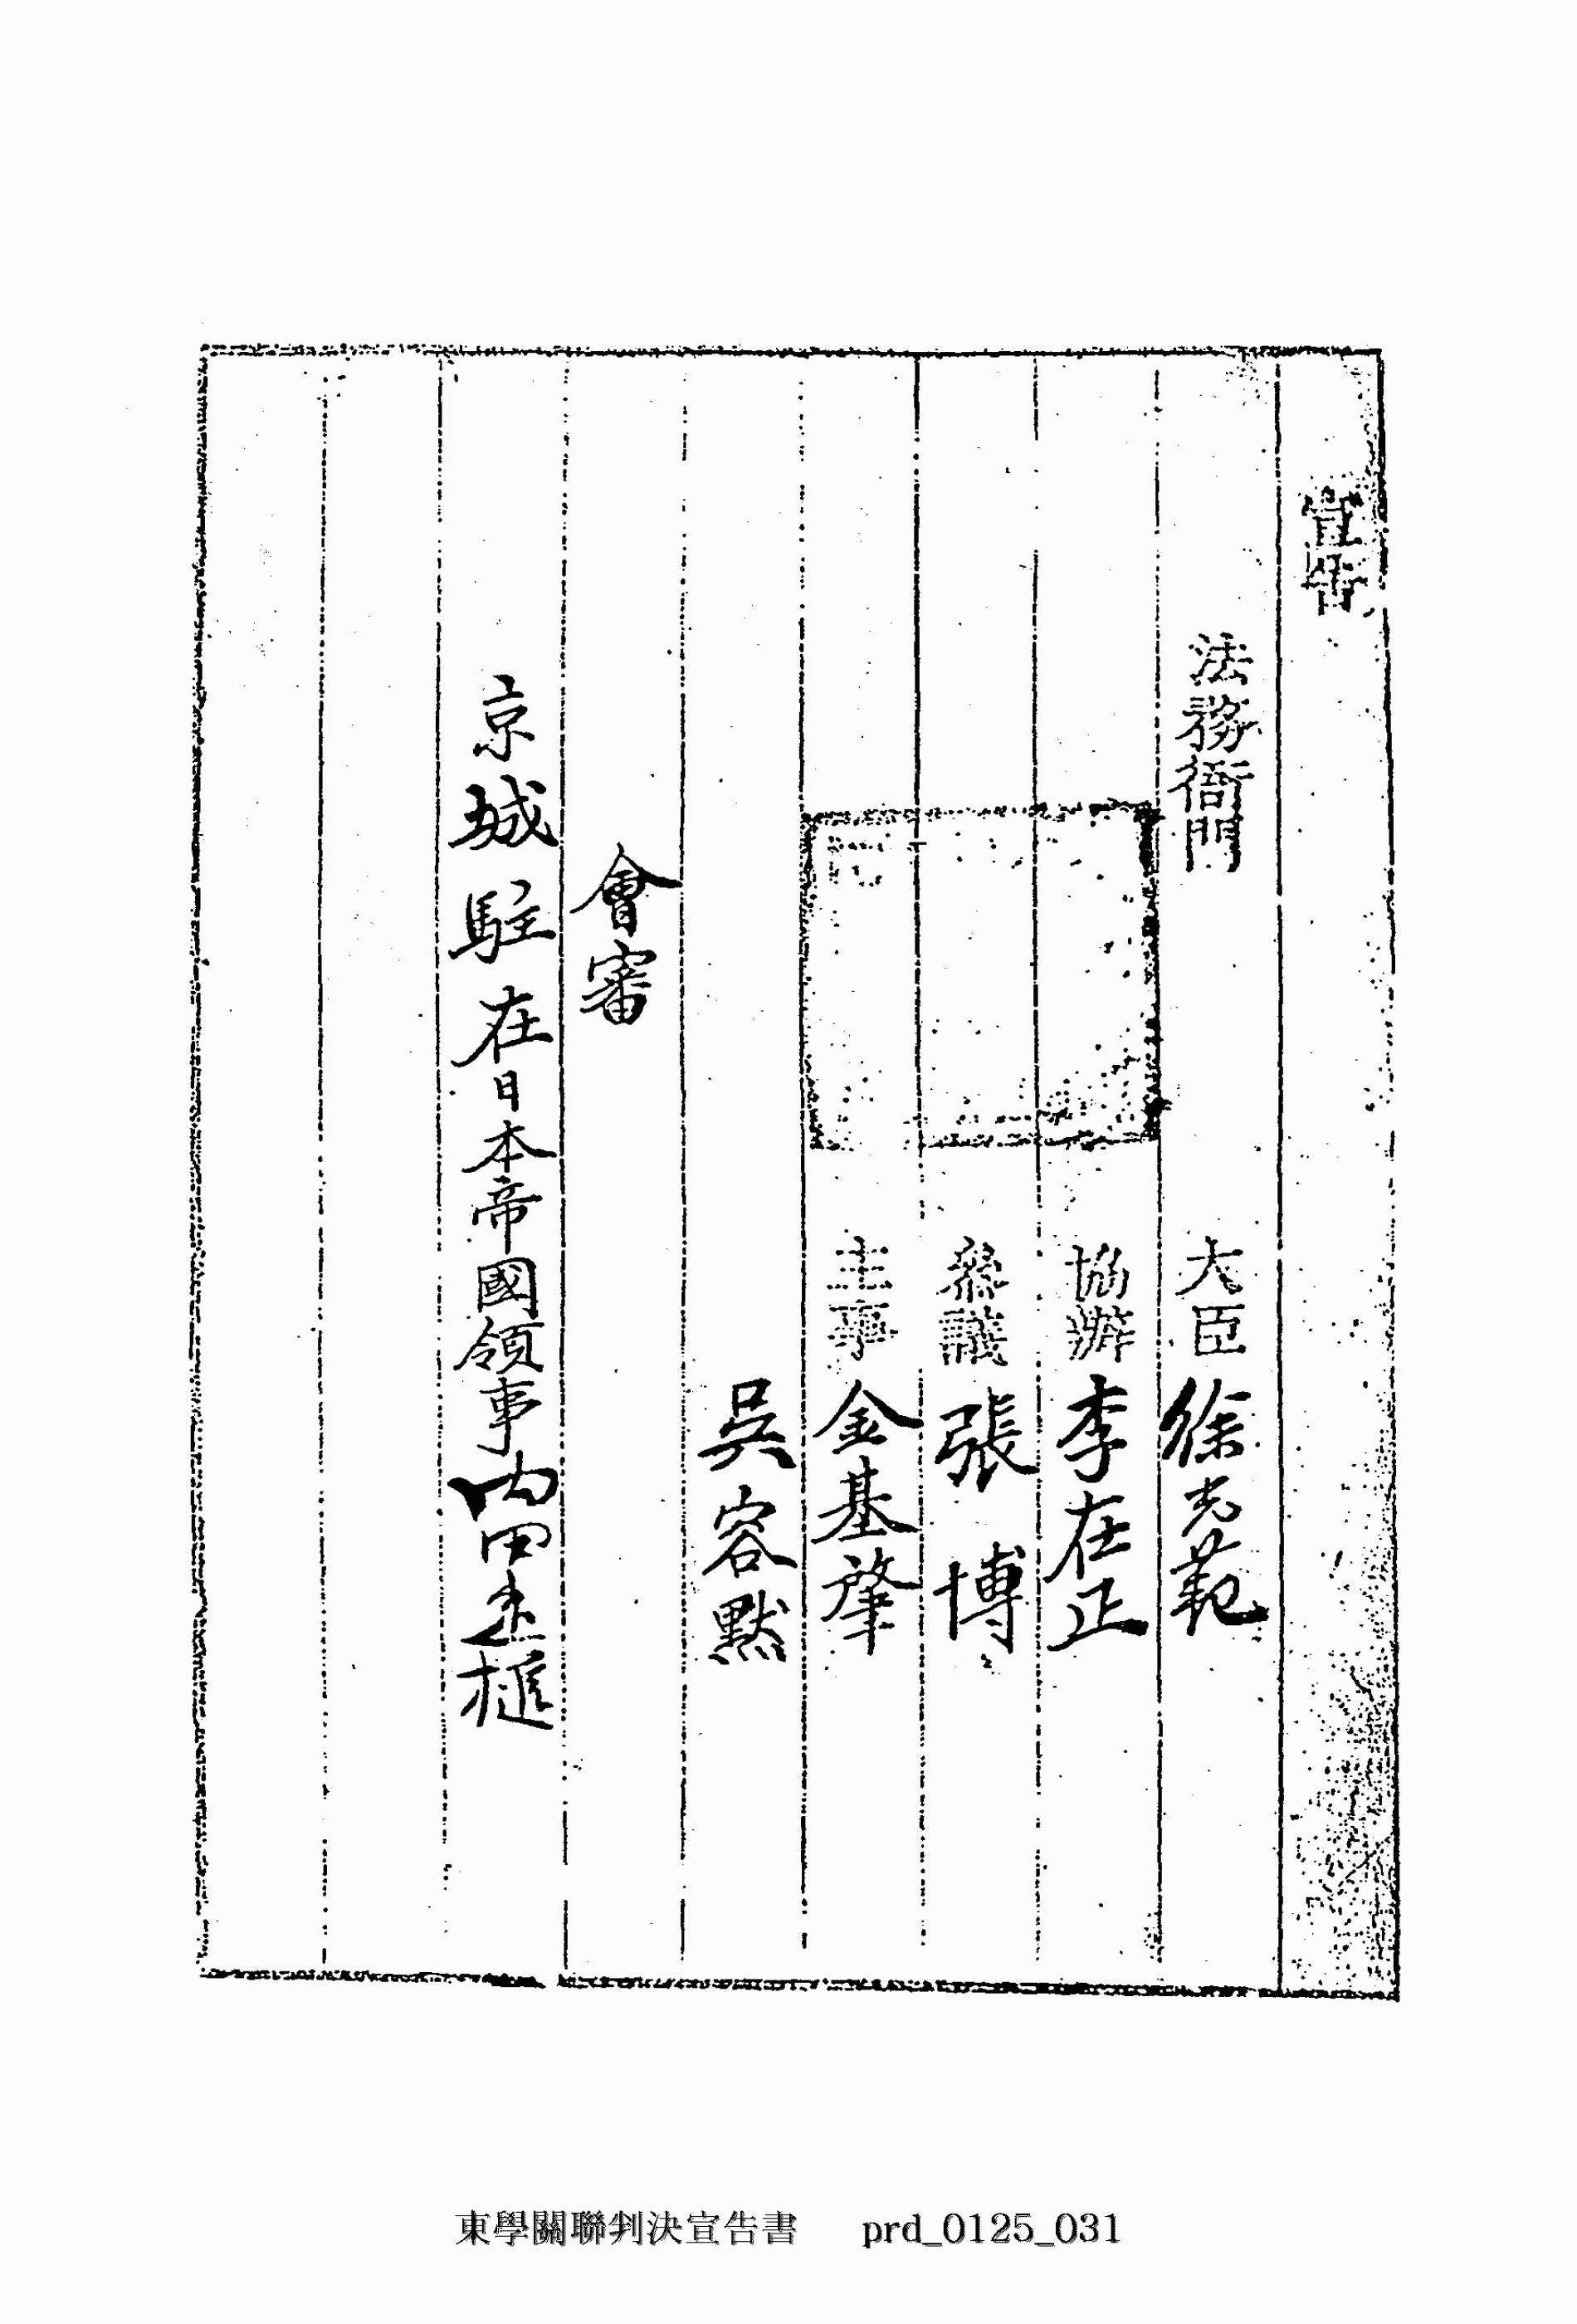 宣告
法務衙門 大臣 徐光範
協辦 李在正
參議 張博
主事 金基肇
吳容黙
會審
京城駐在日本帝國領事 內田定槌
東學關聯判決宣告書 prd_0125_031